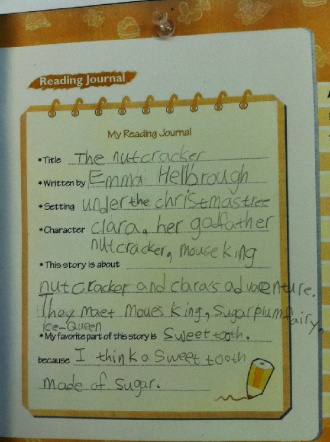 Reading Journal
My Reading Journal
• Title The nutcracker
• Written by Emma Helbrough
• Setting under the christmastree
• Character clara, her godfather
nutcracker, mouse king
• This story is about
nutcracker and clara's adventure.
They maet moues King, Sugarplum fairy,
ice-Queen
• My favorite part of this story is Sweet tooth.
because I think a Sweet tooth
made of sugar.